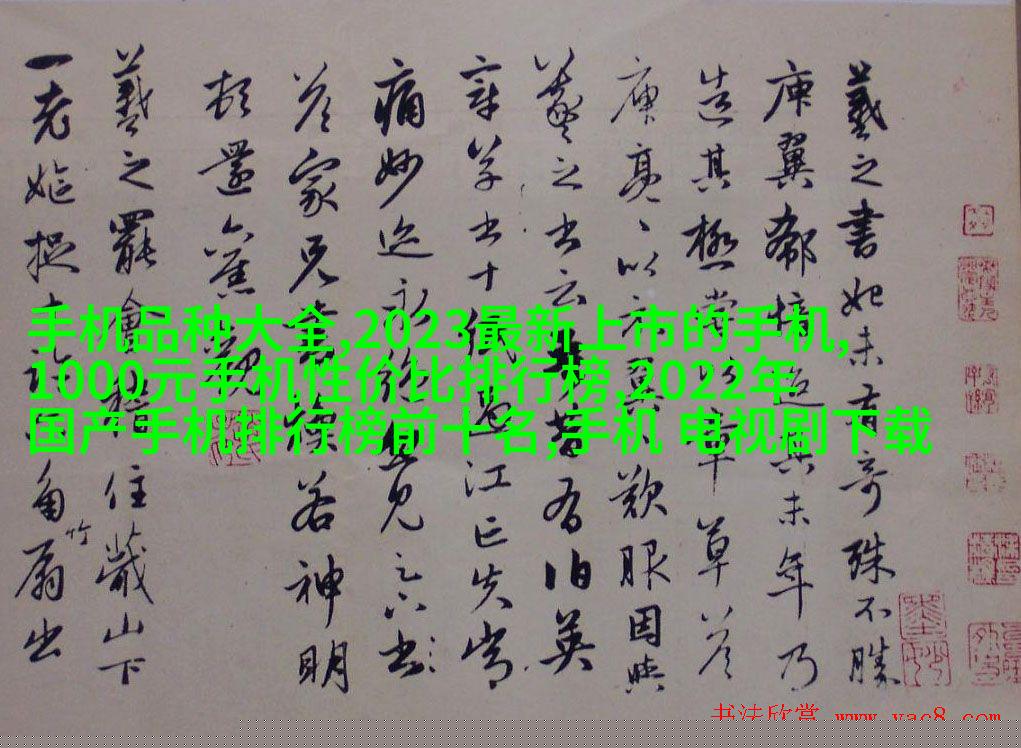 羲之書初未有奇殊不勝
庾翼郗愔迨其末年乃
造其極嘗以章草答
庾亮亮以示翼歎服因與
羲之書云吾昔有伯英
章草書十紙過江亡失常
痛妙迹永絕忽見足下書
答家兄書煥若神明
頓還舊觀
羲之罷會稽住蕺山下
一老嫗捉六角竹扇出
手机品种大全,2023最新上市的手机,
1000元手机性价比排行榜,2022年
国产手机排行榜前十名,手机 电视剧下载
书法欣赏 www.yac8.com